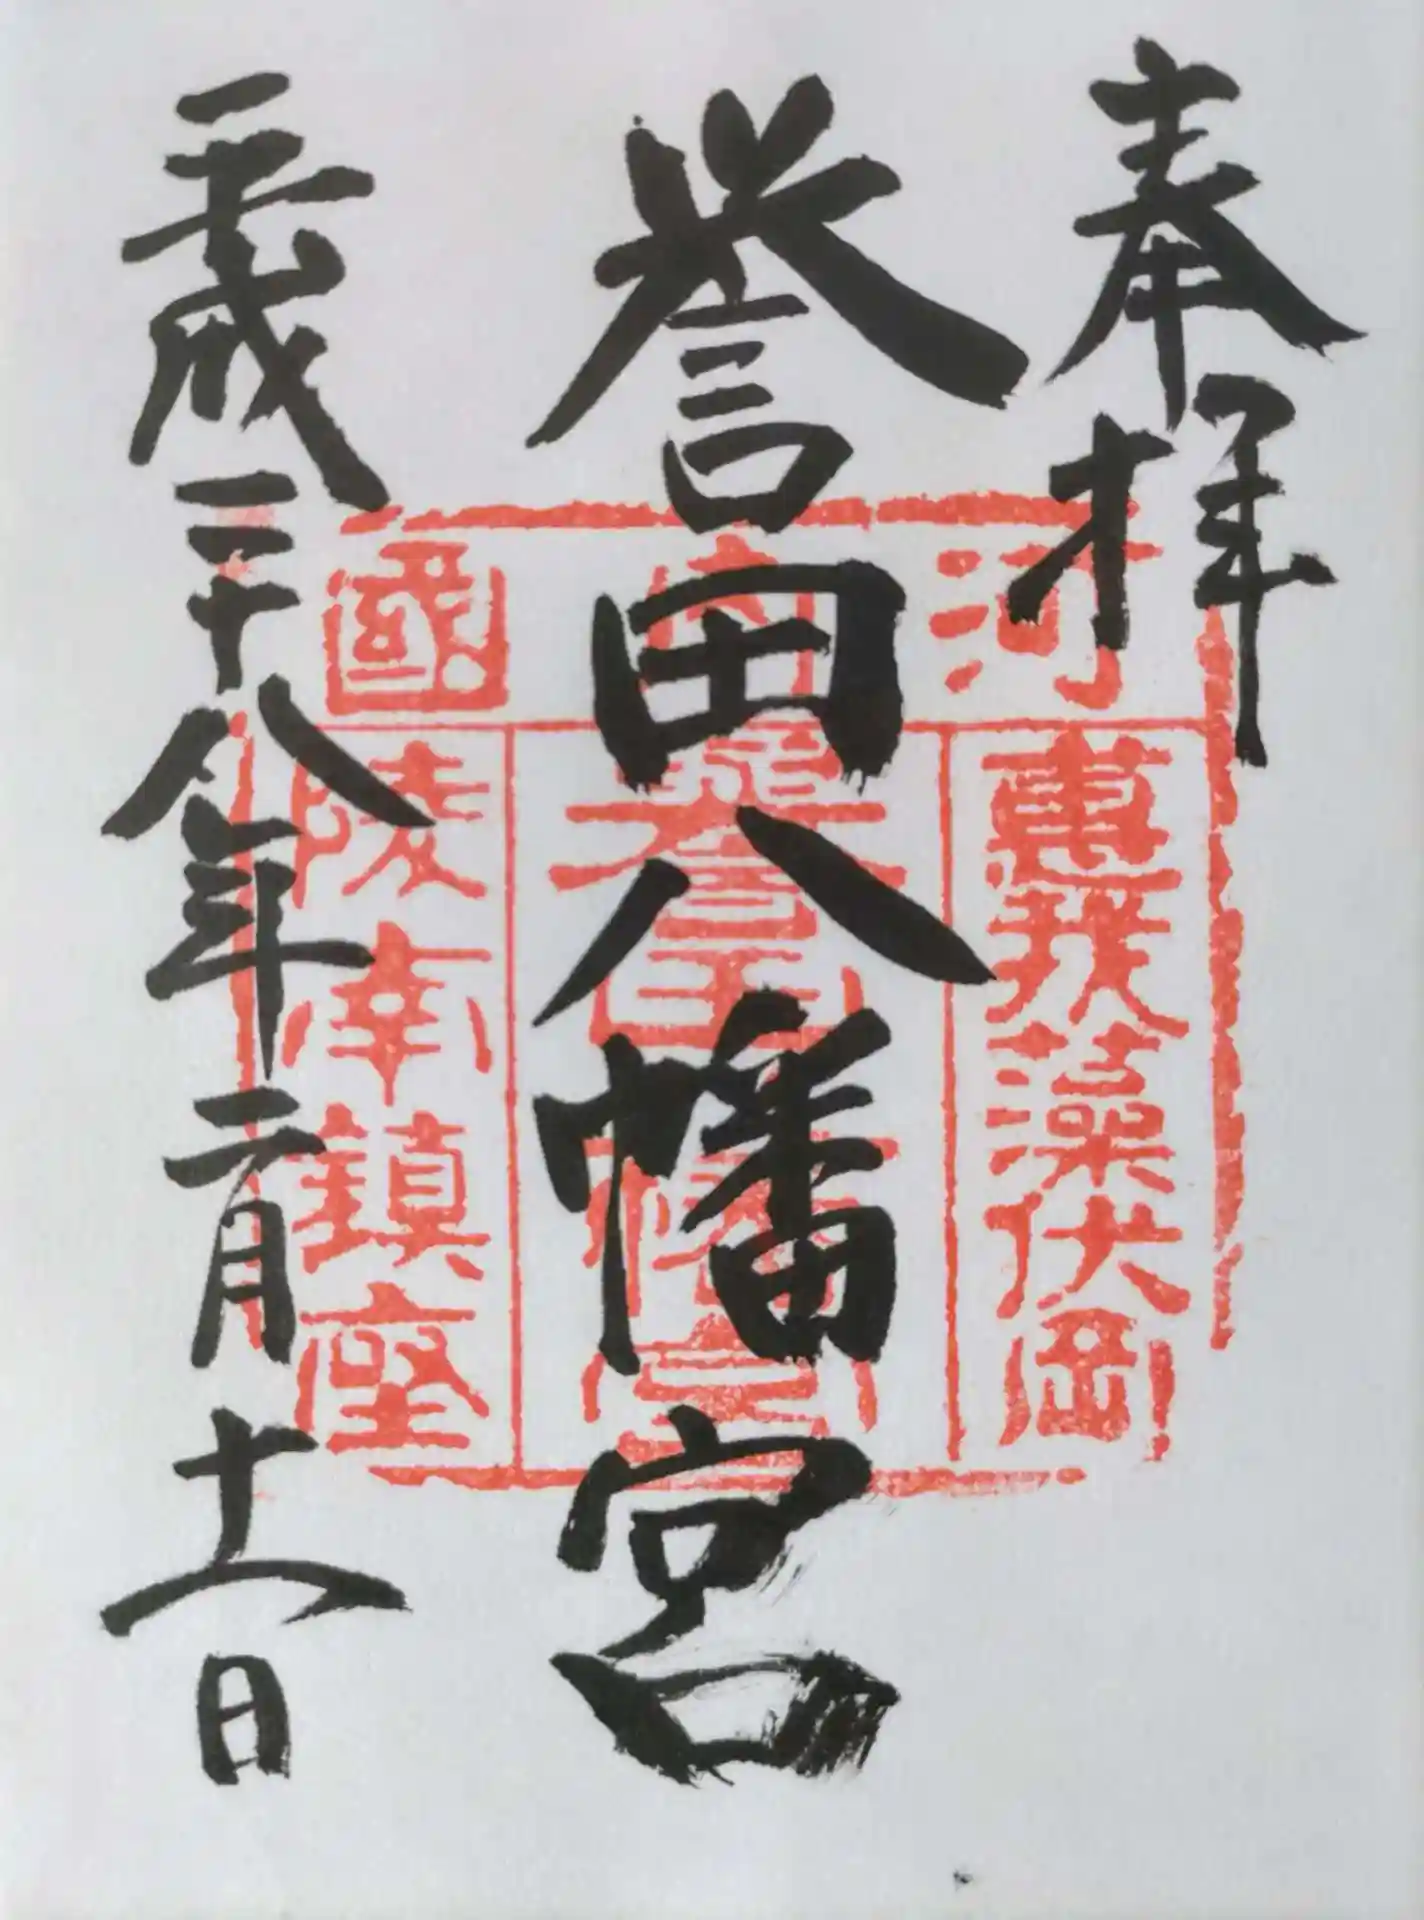 奉拝
誉田八幡宮
平成二十八年二月十一日
河内國
惠我藻伏岡
譽田八幡宮
陵南鎮座